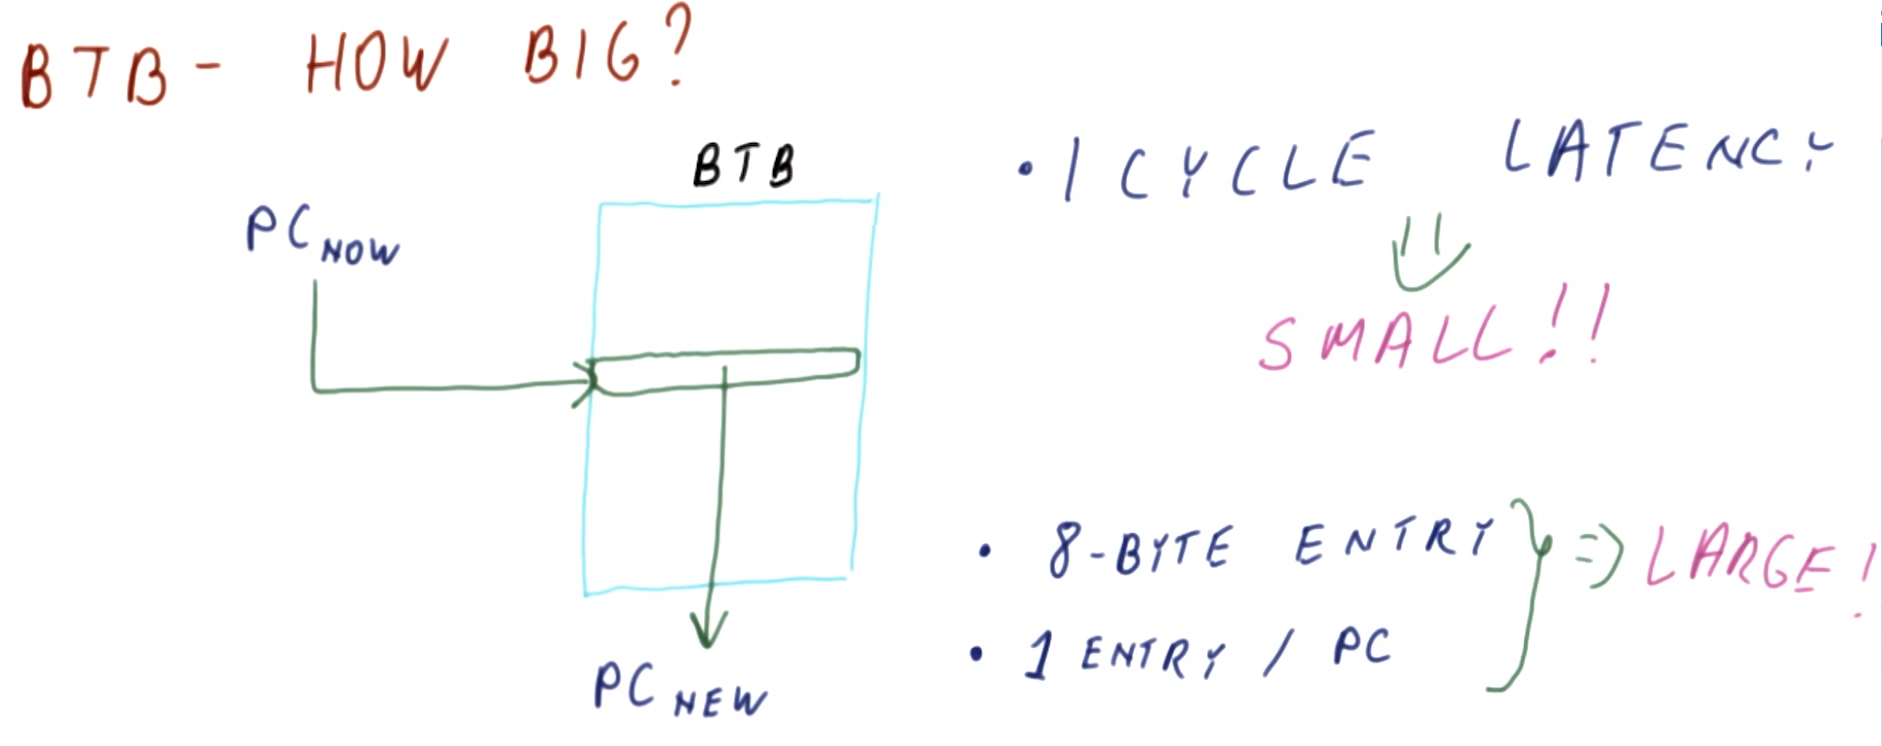 BTB - HOW BIG?
BTB
PC NOW
PC NEW
• 1 CYCLE LATENCY
⇓
SMALL!!
• 8-BYTE ENTRY
• 1 ENTRY / PC
⇒ LARGE!